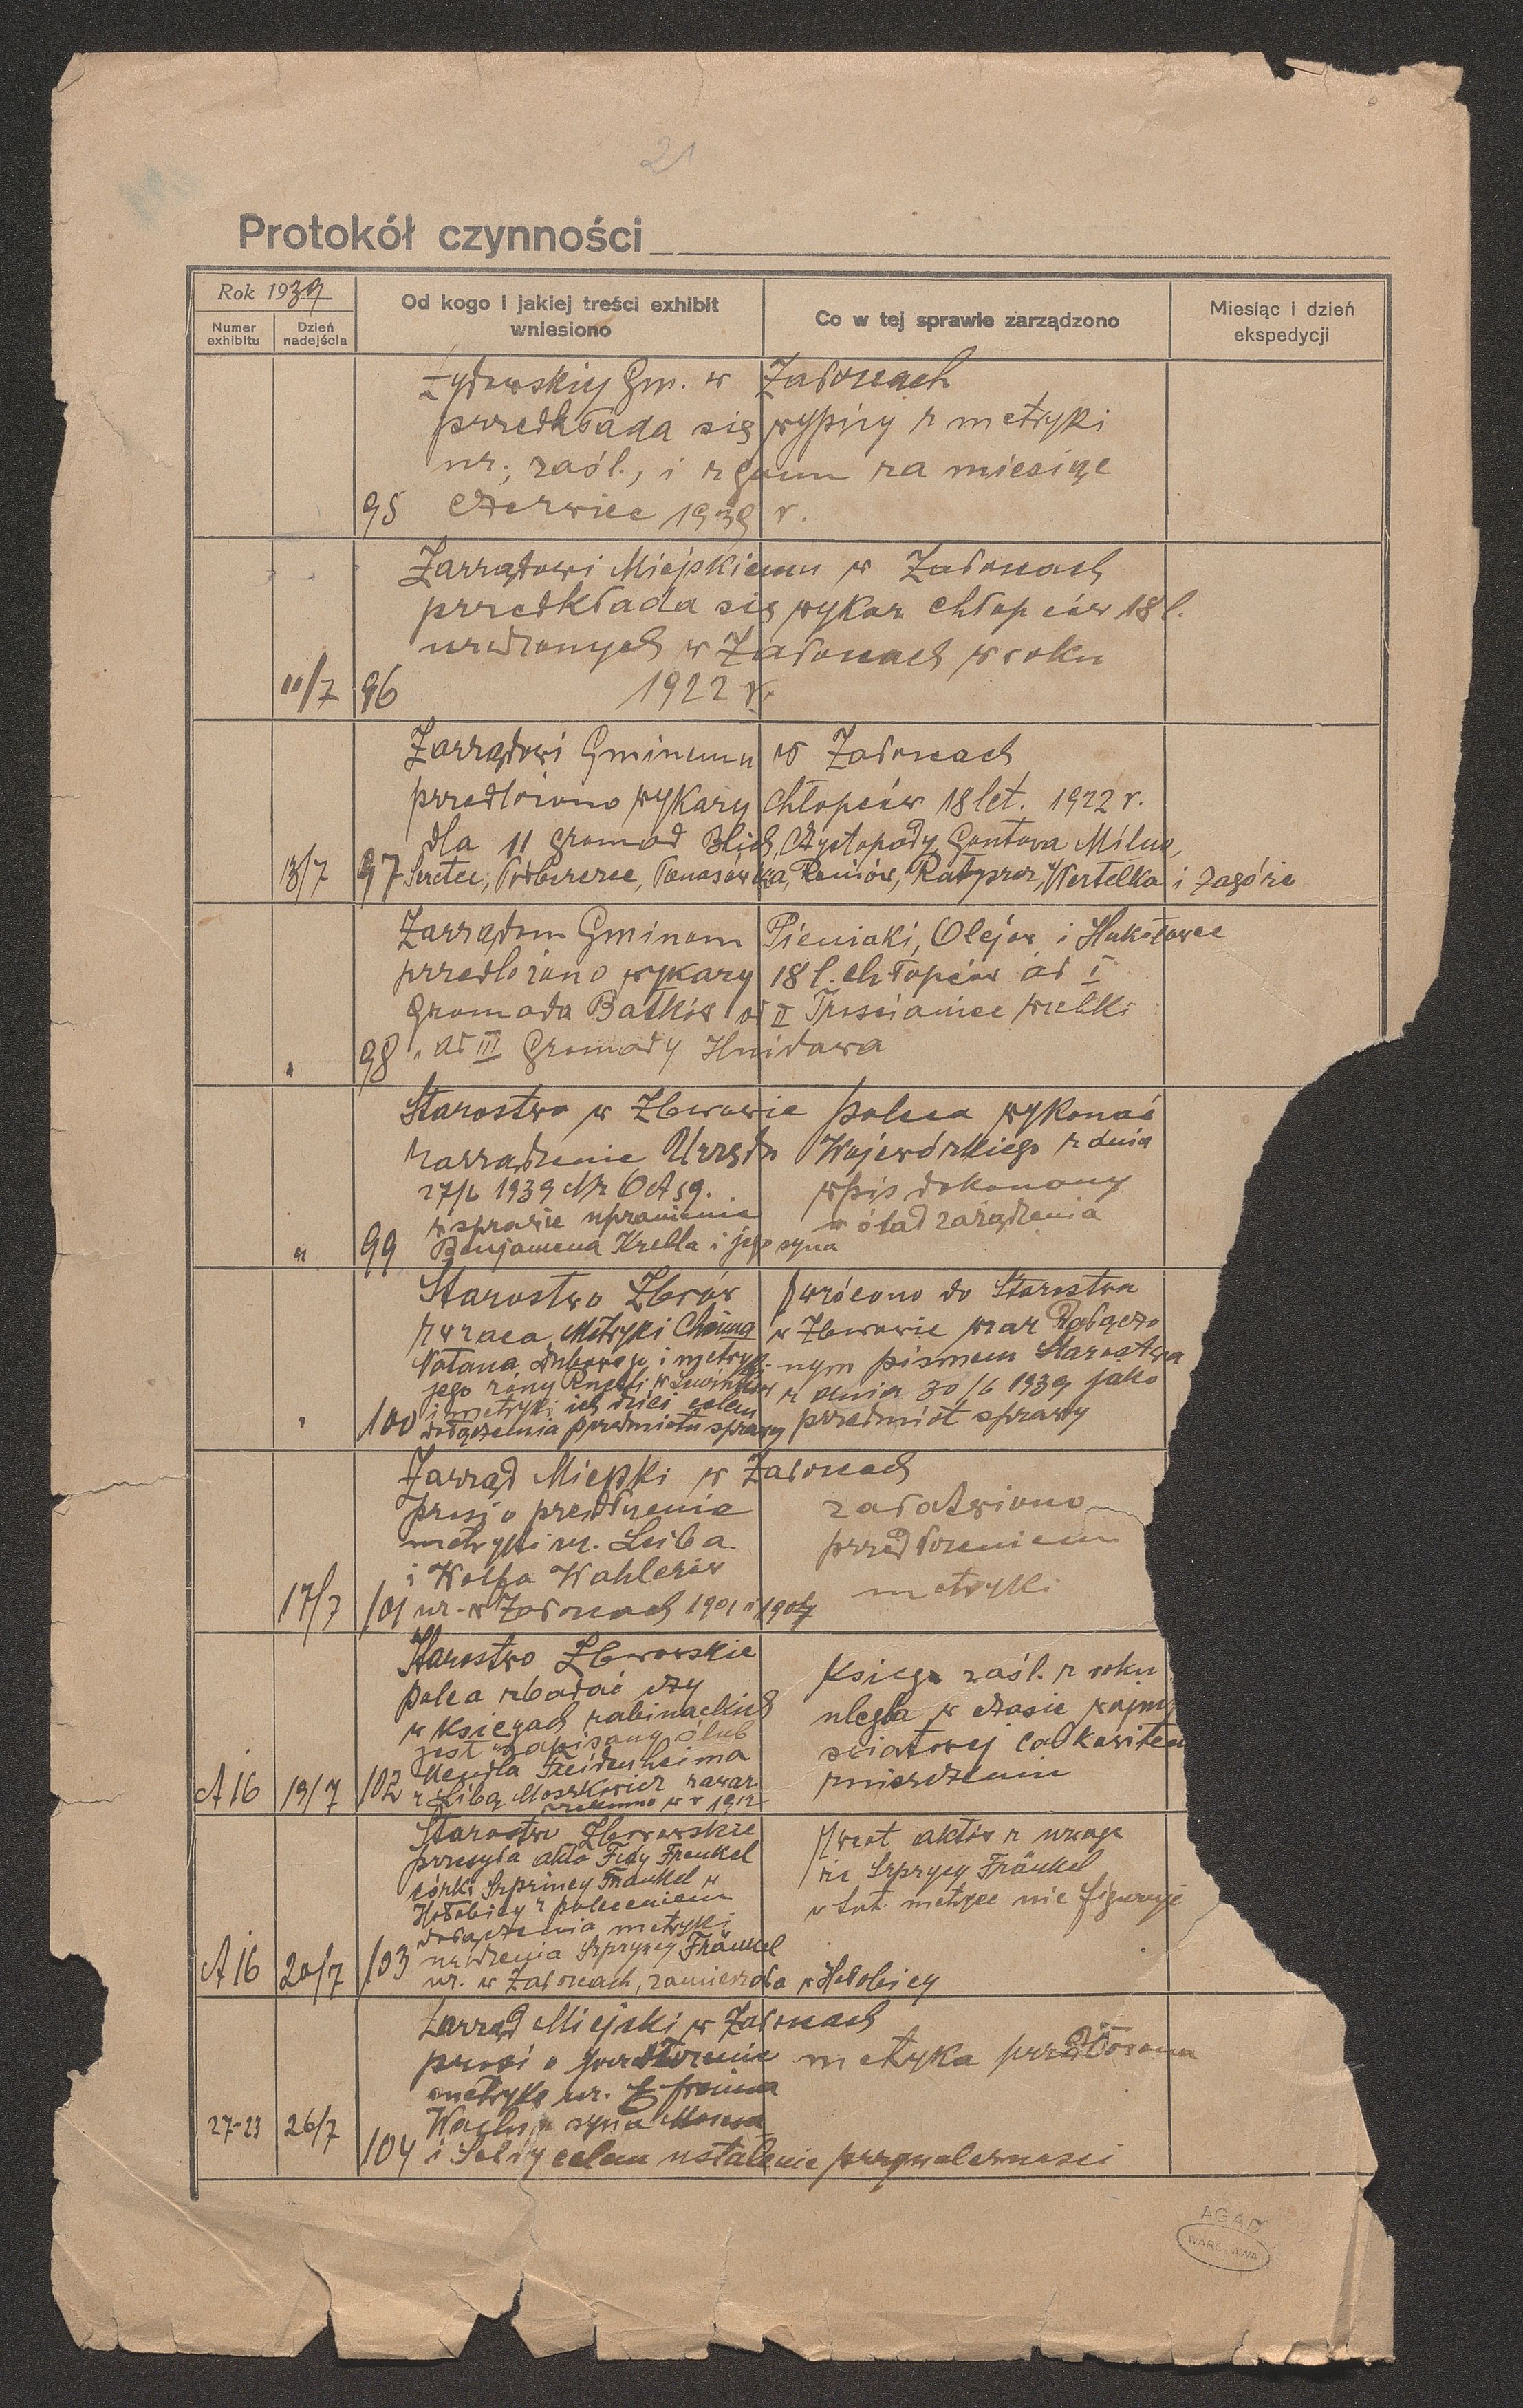 21
Protokół czynności
Rok 1939
Numer exhibitu
Dzień nadejścia
Od kogo i jakiej treści exhibit wniesiono
Co w tej sprawie zarządzono
Miesiąc i dzień ekspedycji
Żydowskiej Gm. w Załoźcach
przedkłada się wypisy z metryki
ur., zaśl., i zgonu za miesiąc
95 czerwiec 1939 r.
Zarządowi Miejskiemu w Załozcach
przedkłada się wykaz chłopców 18 l.
urodzonych w Załozcach w roku
11/7 96 1922 r.
Zarządowi Gminemu w Załozcach
przedłożono wykazy chłopców 18 let. 1922 r.
dla 11 gromad Blich, Czystopady, Gontowa, Milno,
13/7 97 Seretec, Podbereźce, Raniów, Ratyszcz, Wertelka i Zagórze
Zarządom Gminom Pieniaki, Olejow i Hukałowce
przedłożono wykazy 18 l. chłopców ad I
gromada Bałków ad II Trościaniec wielki
" 98 ad III Gromady Hnidawa
Starostwo w Zborowie poleca wykonać
zarządzenie Urzędu Wojewódzkiego z dnia
27/6 1939 Nr
wpis dokonany
w sprawie uprawnienia
w ślad zarządzenia
" 99 Benjamena Krebla i jego syna
Starostwo Zborów
zwraca Metryki Chaima
Natana i metryk.
jego żony
i metryki ich dzieci celem
" 100 dołączenia przedmiotu sprawy
zwrócono do Starostwa
w Zborowie wraz Dołączo
nym pismem Starostwa
z dnia 30/6 1939 jako
przedmiot sprawy
Zarząd Miejski w Załozcach
prosi o przedłożenie
metryki ur. Leiba
i Wolfa Wahlerów
17/7 101 ur. w Załozcach 1901 i 1904
załatwiono
przedłożeniem
metryki
Starostwo Zborowskie
poleca zbadać czy
w księgach rabinackich
jest zapisany ślub
Mendla Freidenheima
A 16 19/7 102 z Libą Moszkowicz zawar.
w r 1912
Księga zaśl. z roku
uległa w czasie wojny
światowej całkowitem
zniszczeniu
Starostwo Zborowskie
przesyła akta Fedy Frenkel
córki Szprincy Frankel w
Hołobicy z poleceniem
dołączenia metryki
A 16 20/7 103 urodzenia Szprycy Fränkel
ur. w Załozcach, zamieszkała w Hołobicy
Zwrot aktów z uwagą
że Szprycy Fränkel
w tut. metryce nie figuruje
Zarząd Miejski w Załozcach
prosi o przedłożenie
metryka przedłożona
metryki ur. Efroima
syna Mosesa
27-23 26/7 104 celem ustalenie przynależności
AGAD
WARSZAWA